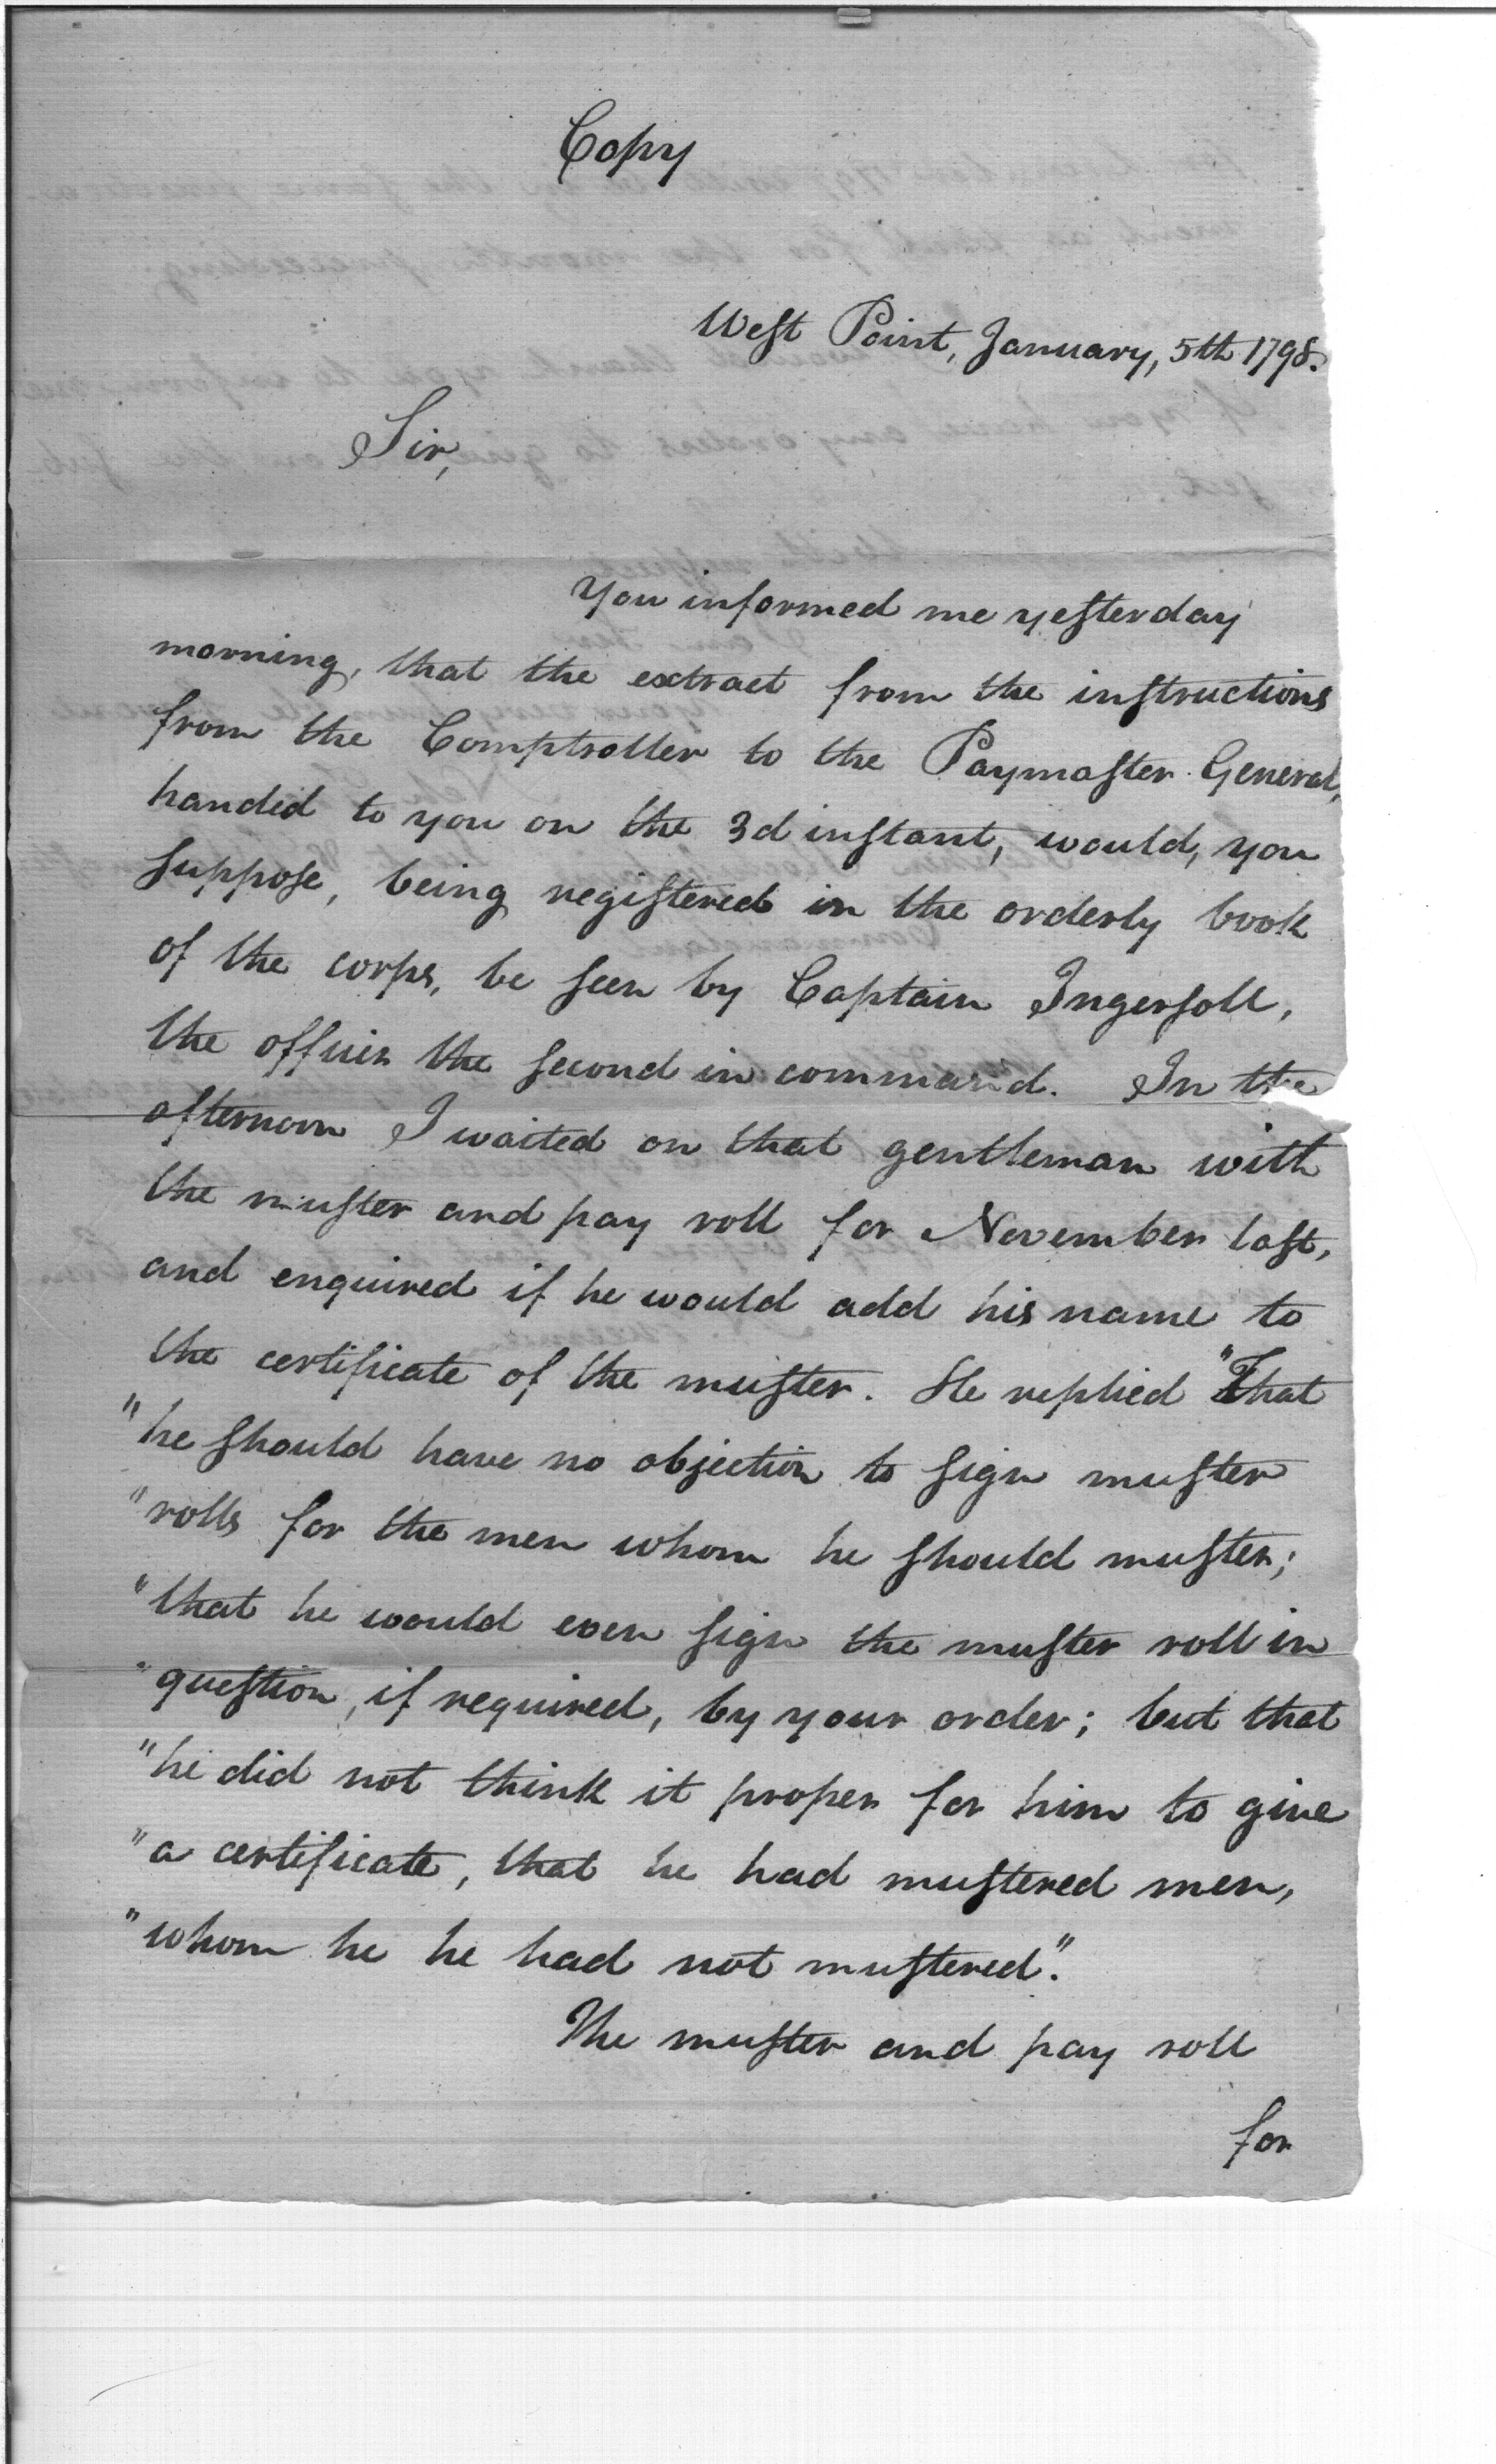 Copy
West Point, January, 5th 1798.
Sir,
You informed me yesterday
morning, that the extract from the instructions
from the Comptroller to the Paymaster General,
handed to you on the 3d instant, would, you
suppose, being registered in the orderly book
of the corps, be seen by Captain Ingersoll,
the officer the second in command. In the
afternoon I waited on that gentleman with
the muster and pay roll for November last,
and enquired if he would add his name to
the certificate of the muster. He replied "That
"he should have no objection to sign muster
"rolls for the men whom he should muster;
"that he would even sign the muster roll in
"question, if required, by your order; but that
"he did not think it proper for him to give
"a certificate, that he had mustered men,
"whom he he had not mustered".
The muster and pay roll
for